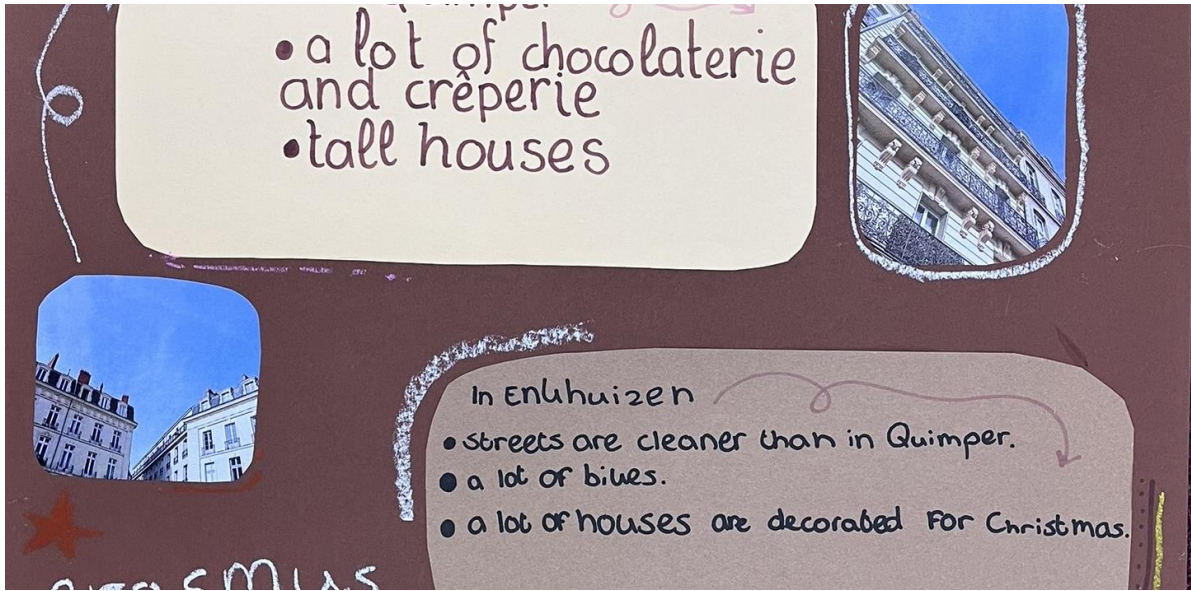 • a lot of chocolaterie
and crêperie
• tall houses
In Enkhuizen
• streets are cleaner than in Quimper.
• a lot of bikes.
• a lot of houses are decorated For Christmas.
erasmus